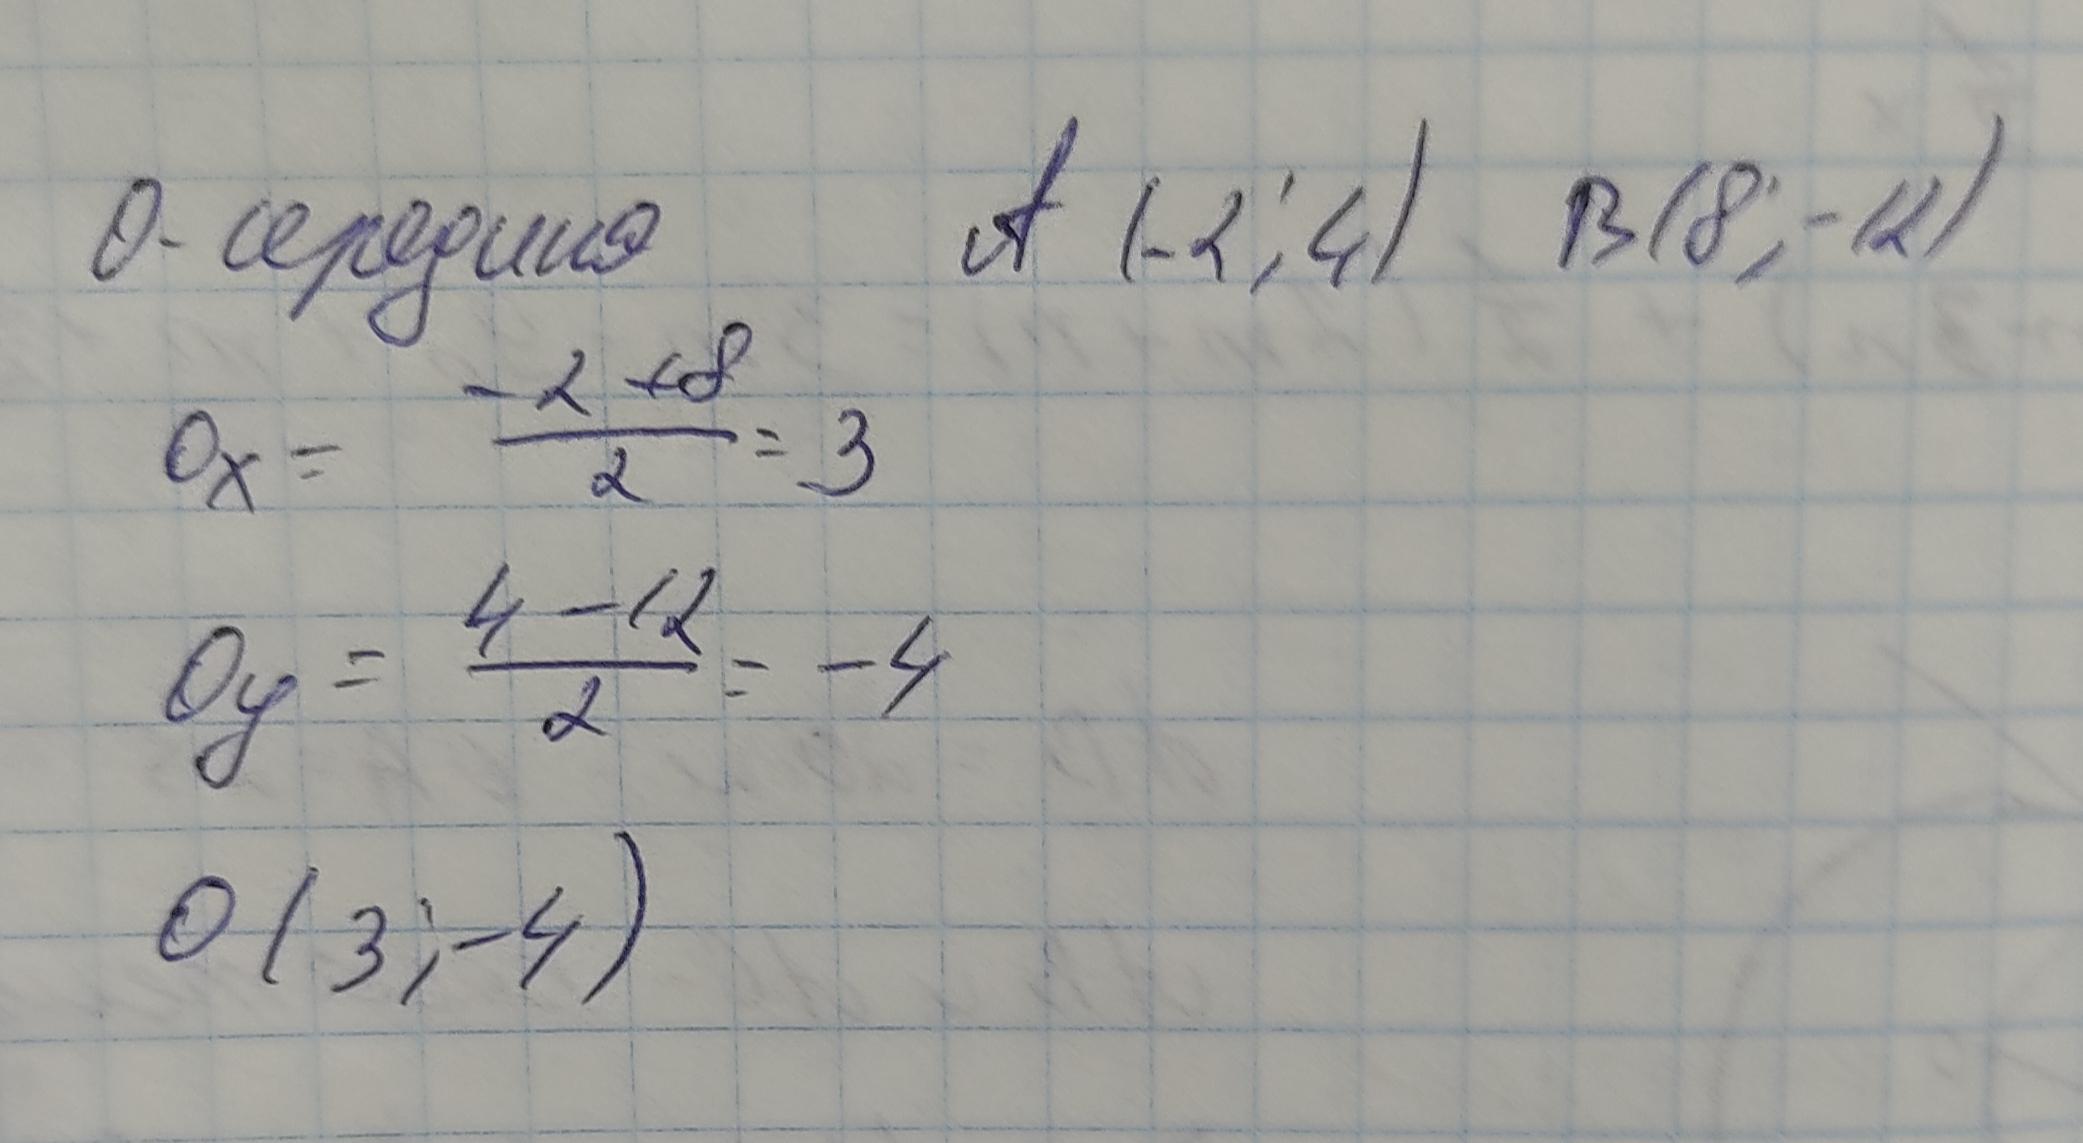 О- середина A (-2; 4) B(8; -12)
Ox = \frac{-2+8}{2} = 3
Oy = \frac{4-12}{2} = -4
O(3; -4)